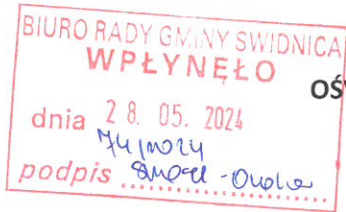 BIURO RADY GMINY ŚWIDNICA
WPŁYNĘŁO
OŚ
dnia 28. 05. 2024
podpis